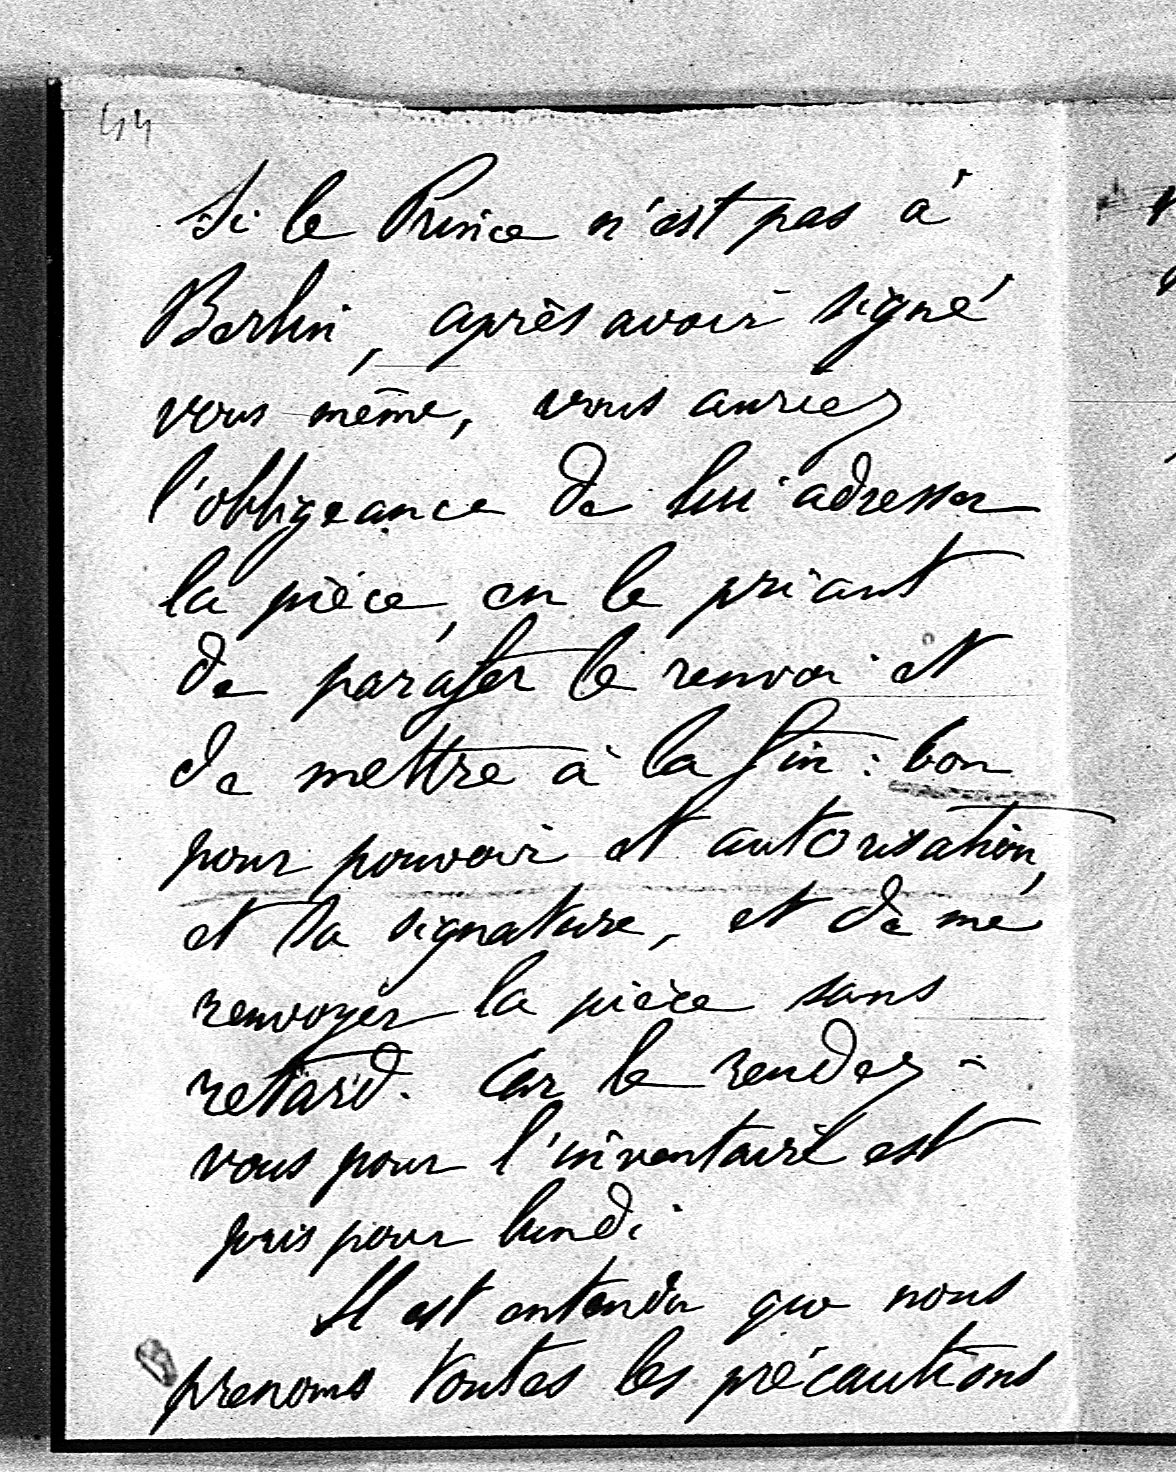 44
Si le Prince n'est pas à
Berlin, après avoir signé
vous même, vous auriez
l'obligeance de lui adresser
la pièce, en le priant
de parafer le renvoi et
de mettre à la fin : bon
pour pouvoir et autorisation,
et sa signature, et de me
renvoyer la pièce sans
retard. Car le rendez-
vous pour l'inventaire est
pris pour lundi.
Il est entendu que nous
prenons toutes les précautions